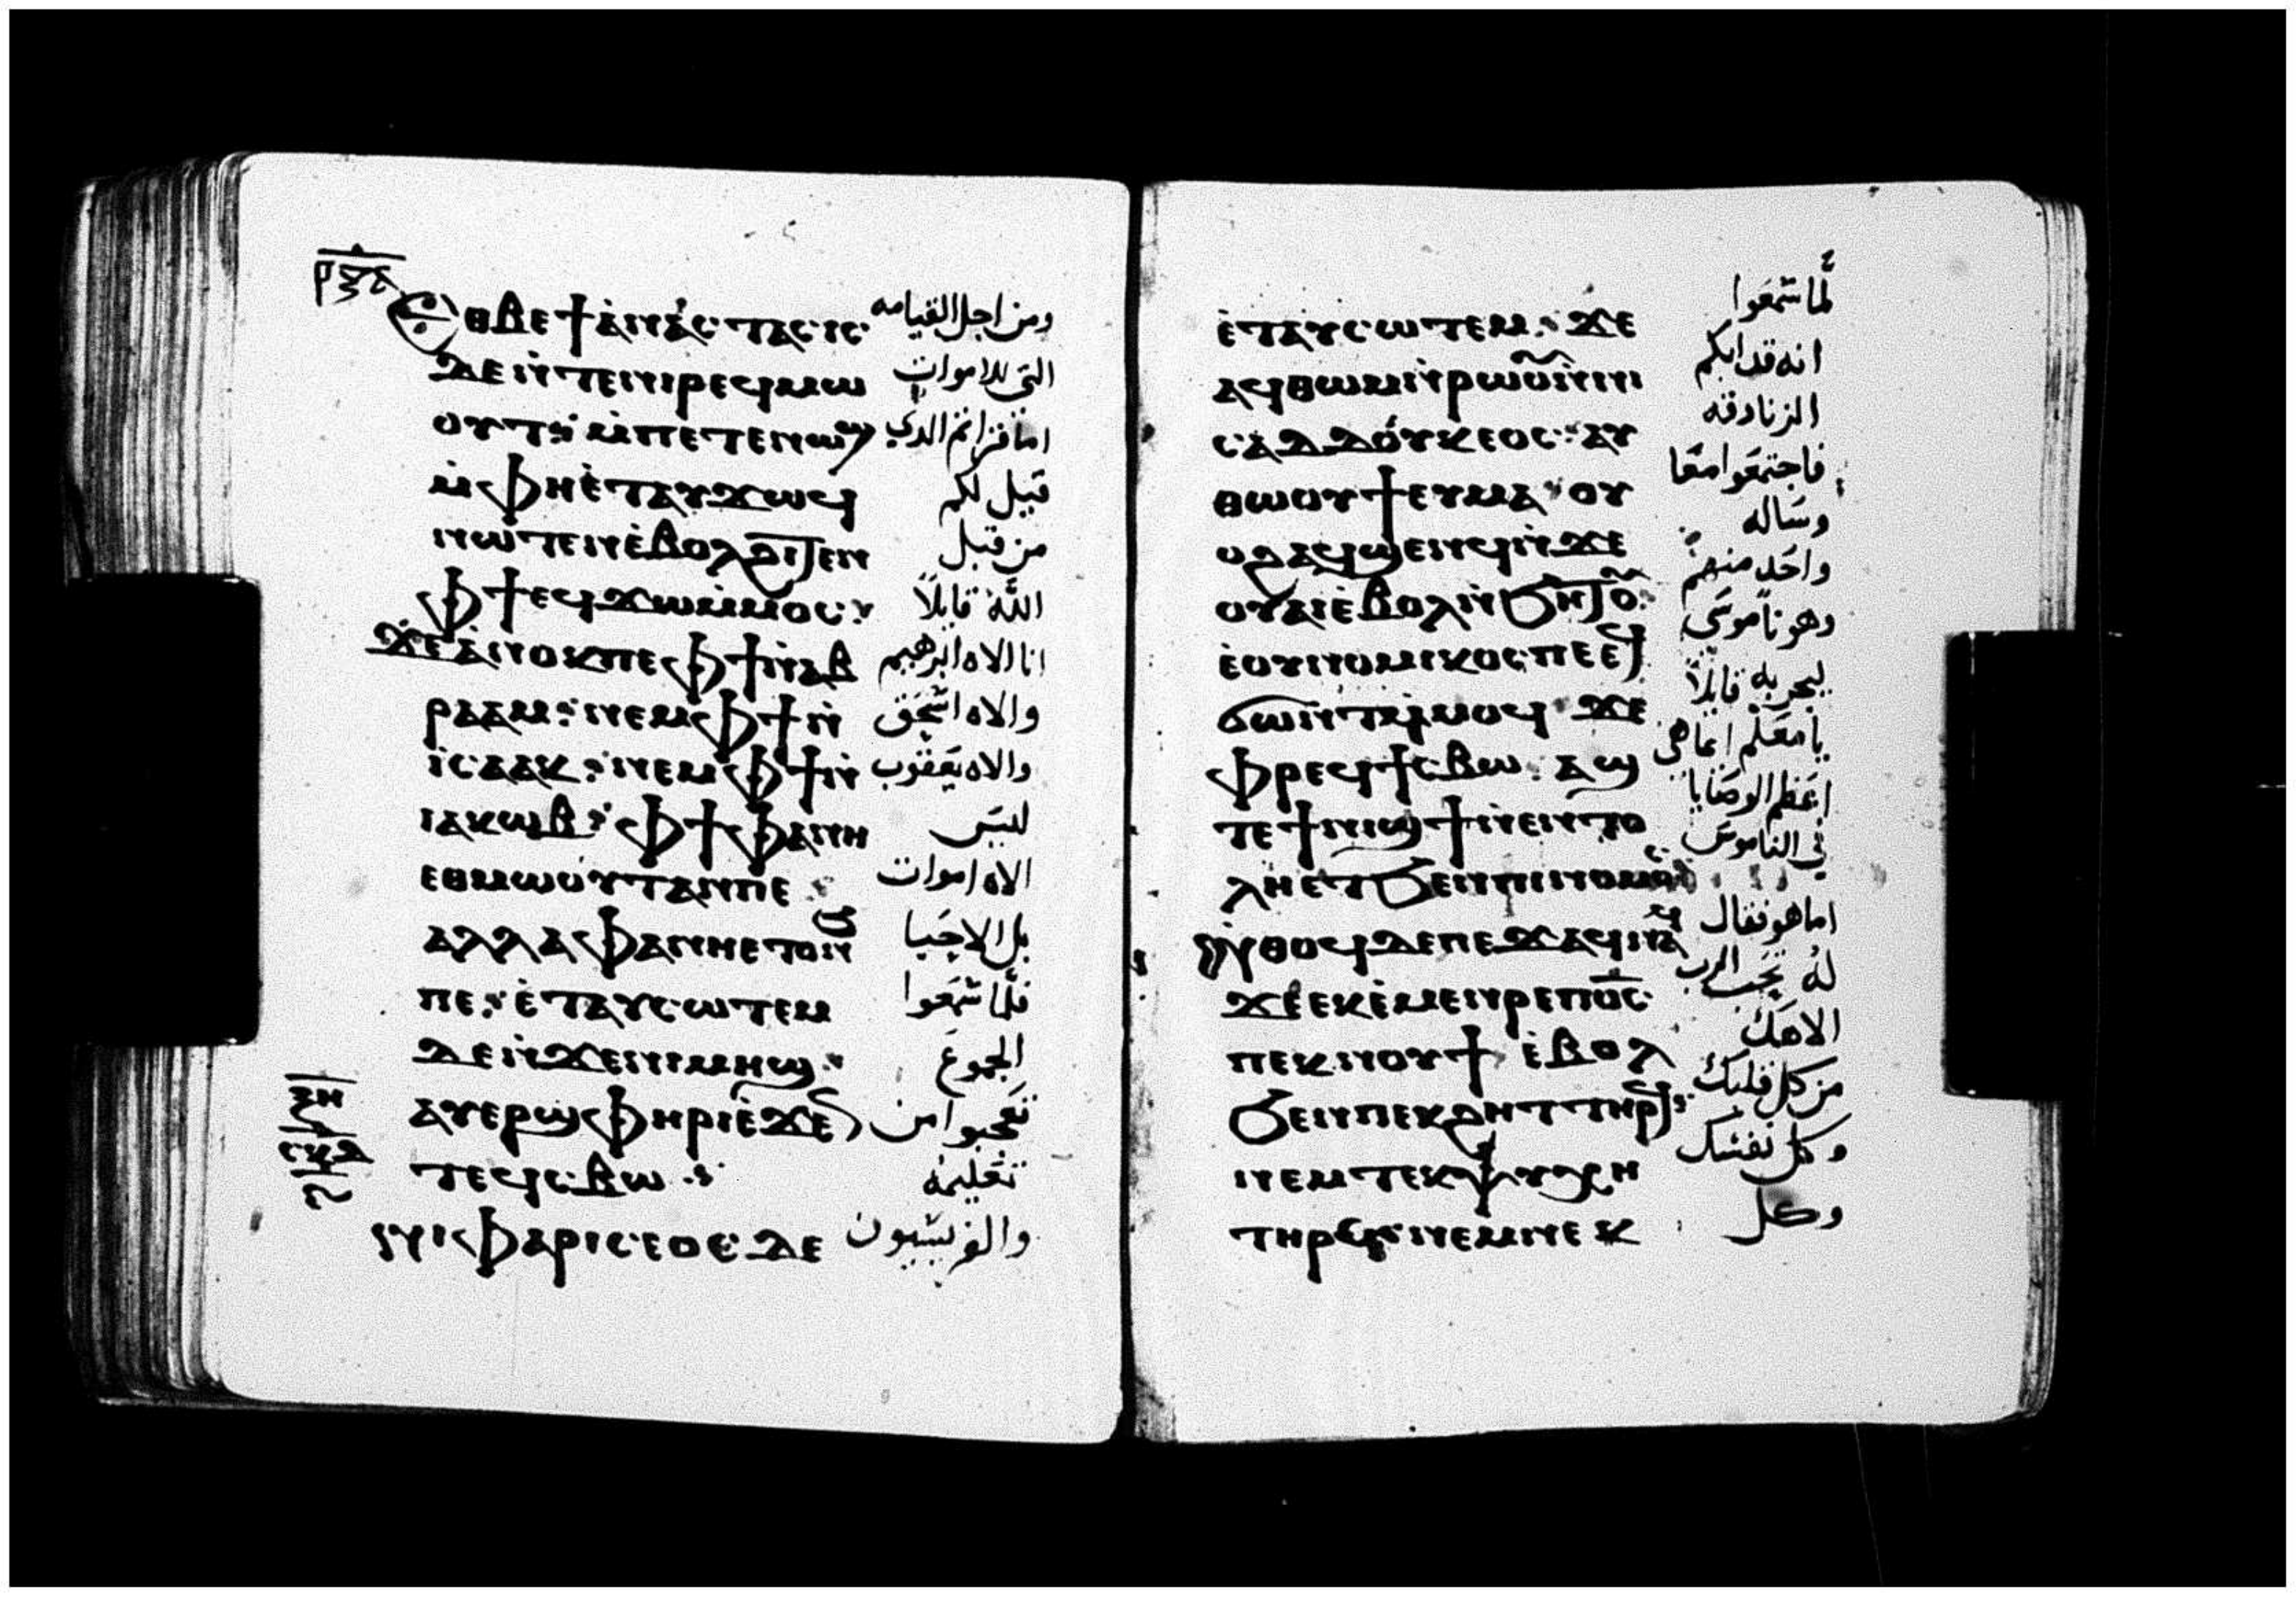 ⲣⲝⲇ
ⲉⲑⲃⲉ ϯⲁⲛⲁⲥⲧⲁⲥⲓⲥ ومن اجل القيامه
ⲇⲉ ⲛⲧⲉⲛⲓⲣⲉϥⲙⲱ التى للاموات
ⲟⲩⲧ ⲙⲡⲉⲧⲉⲛⲱϣ اما قراتم الدي
ⲙⲫⲏⲉⲧⲁⲩϫⲱϥ قيل لكم
ⲛⲱⲧⲉⲛ ⲉⲃⲟⲗϩⲓⲧⲉⲛ من قبل
ⲫϯ ⲉϥϫⲱⲙⲙⲟⲥ الله قايلاً
ϫⲉ ⲁⲛⲟⲕ ⲡⲉ ⲫϯ ⲛⲁⲃ انا الاه ابرهيم
ⲣⲁⲁⲙ ⲛⲉⲙ ⲫϯ ⲛ والاه اسحق
ⲓⲥⲁⲁⲕ ⲛⲉⲙ ⲫϯ ⲛ والاه يعقوب
ⲓⲁⲕⲱⲃ ⲫϯ ⲫⲁⲛⲏ ليس
ⲉⲑⲙⲱⲟⲩⲧ ⲁⲛ ⲡⲉ الاه اموات
ⲁⲗⲗⲁ ⲫⲁⲛⲏⲉⲧⲟⲛϧ بل الاحيا
ⲡⲉ ⲉⲧⲁⲩⲥⲱⲧⲉⲙ فلما سمعوا
ⲇⲉ ⲛϫⲉⲛⲓⲙⲏϣ الجموع
ⲁⲩⲉⲣϣⲫⲏⲣⲓ ⲉϫⲉⲛ تعجبوا من
ⲧⲉϥⲥⲃⲱ تعليمه
ⲛⲓⲫⲁⲣⲓⲥⲉⲟⲥ ⲇⲉ والفريسيون
ⲉⲧⲁⲩⲥⲱⲧⲉⲙ ϫⲉ لما سمعوا
ⲁϥⲑⲱⲙ ⲛⲣⲱⲟⲩ ⲛⲛⲓ انه قد ابكم
ⲥⲁⲇⲇⲟⲩⲕⲉⲟⲥ ⲁⲩ الزنادقه
ⲑⲱⲟⲩϯ ⲉⲩⲙⲁ ⲟⲩ فاجتمعوا معا
ⲟϩ ⲁϥϣⲉⲛϥ ⲛϫⲉ وساله
ⲟⲩⲁⲓ ⲉⲃⲟⲗ ⲛϧⲏⲧⲟⲩ واحد منهم
ⲉⲟⲩⲛⲟⲙⲓⲕⲟⲥ ⲡⲉ ⲉϥ وهو ناموسى
ϭⲱⲛⲧ ⲙⲙⲟϥ ϫⲉ ليجربه قايلاً
ⲫⲣⲉϥϯⲥⲃⲱ ⲁϣ يا معلم ايما هي
ⲧⲉ ϯⲛⲓϣϯ ⲛⲉⲛⲧⲟ اعظم الوصايا
ⲗⲏ ⲉⲧϧⲉⲛ ⲡⲓⲛⲟⲙⲟⲥ في الناموس
ⲛⲑⲟϥ ⲇⲉ ⲡⲉϫⲁϥ ⲛⲁϥ اما هو فقال
ϫⲉ ⲉⲕⲉⲙⲉⲛⲣⲉ ⲡⲟⲥ له تحب الرب
ⲡⲉⲕⲛⲟⲩϯ ⲉⲃⲟⲗ الاهك
ϧⲉⲛ ⲡⲉⲕϩⲏⲧ ⲧⲏⲣϥ من كل قلبك
ⲛⲉⲙ ⲧⲉⲕⲯⲩⲭⲏ وكل نفسك
ⲧⲏⲣⲥ ⲛⲉⲙ ⲛⲉⲕ وكل